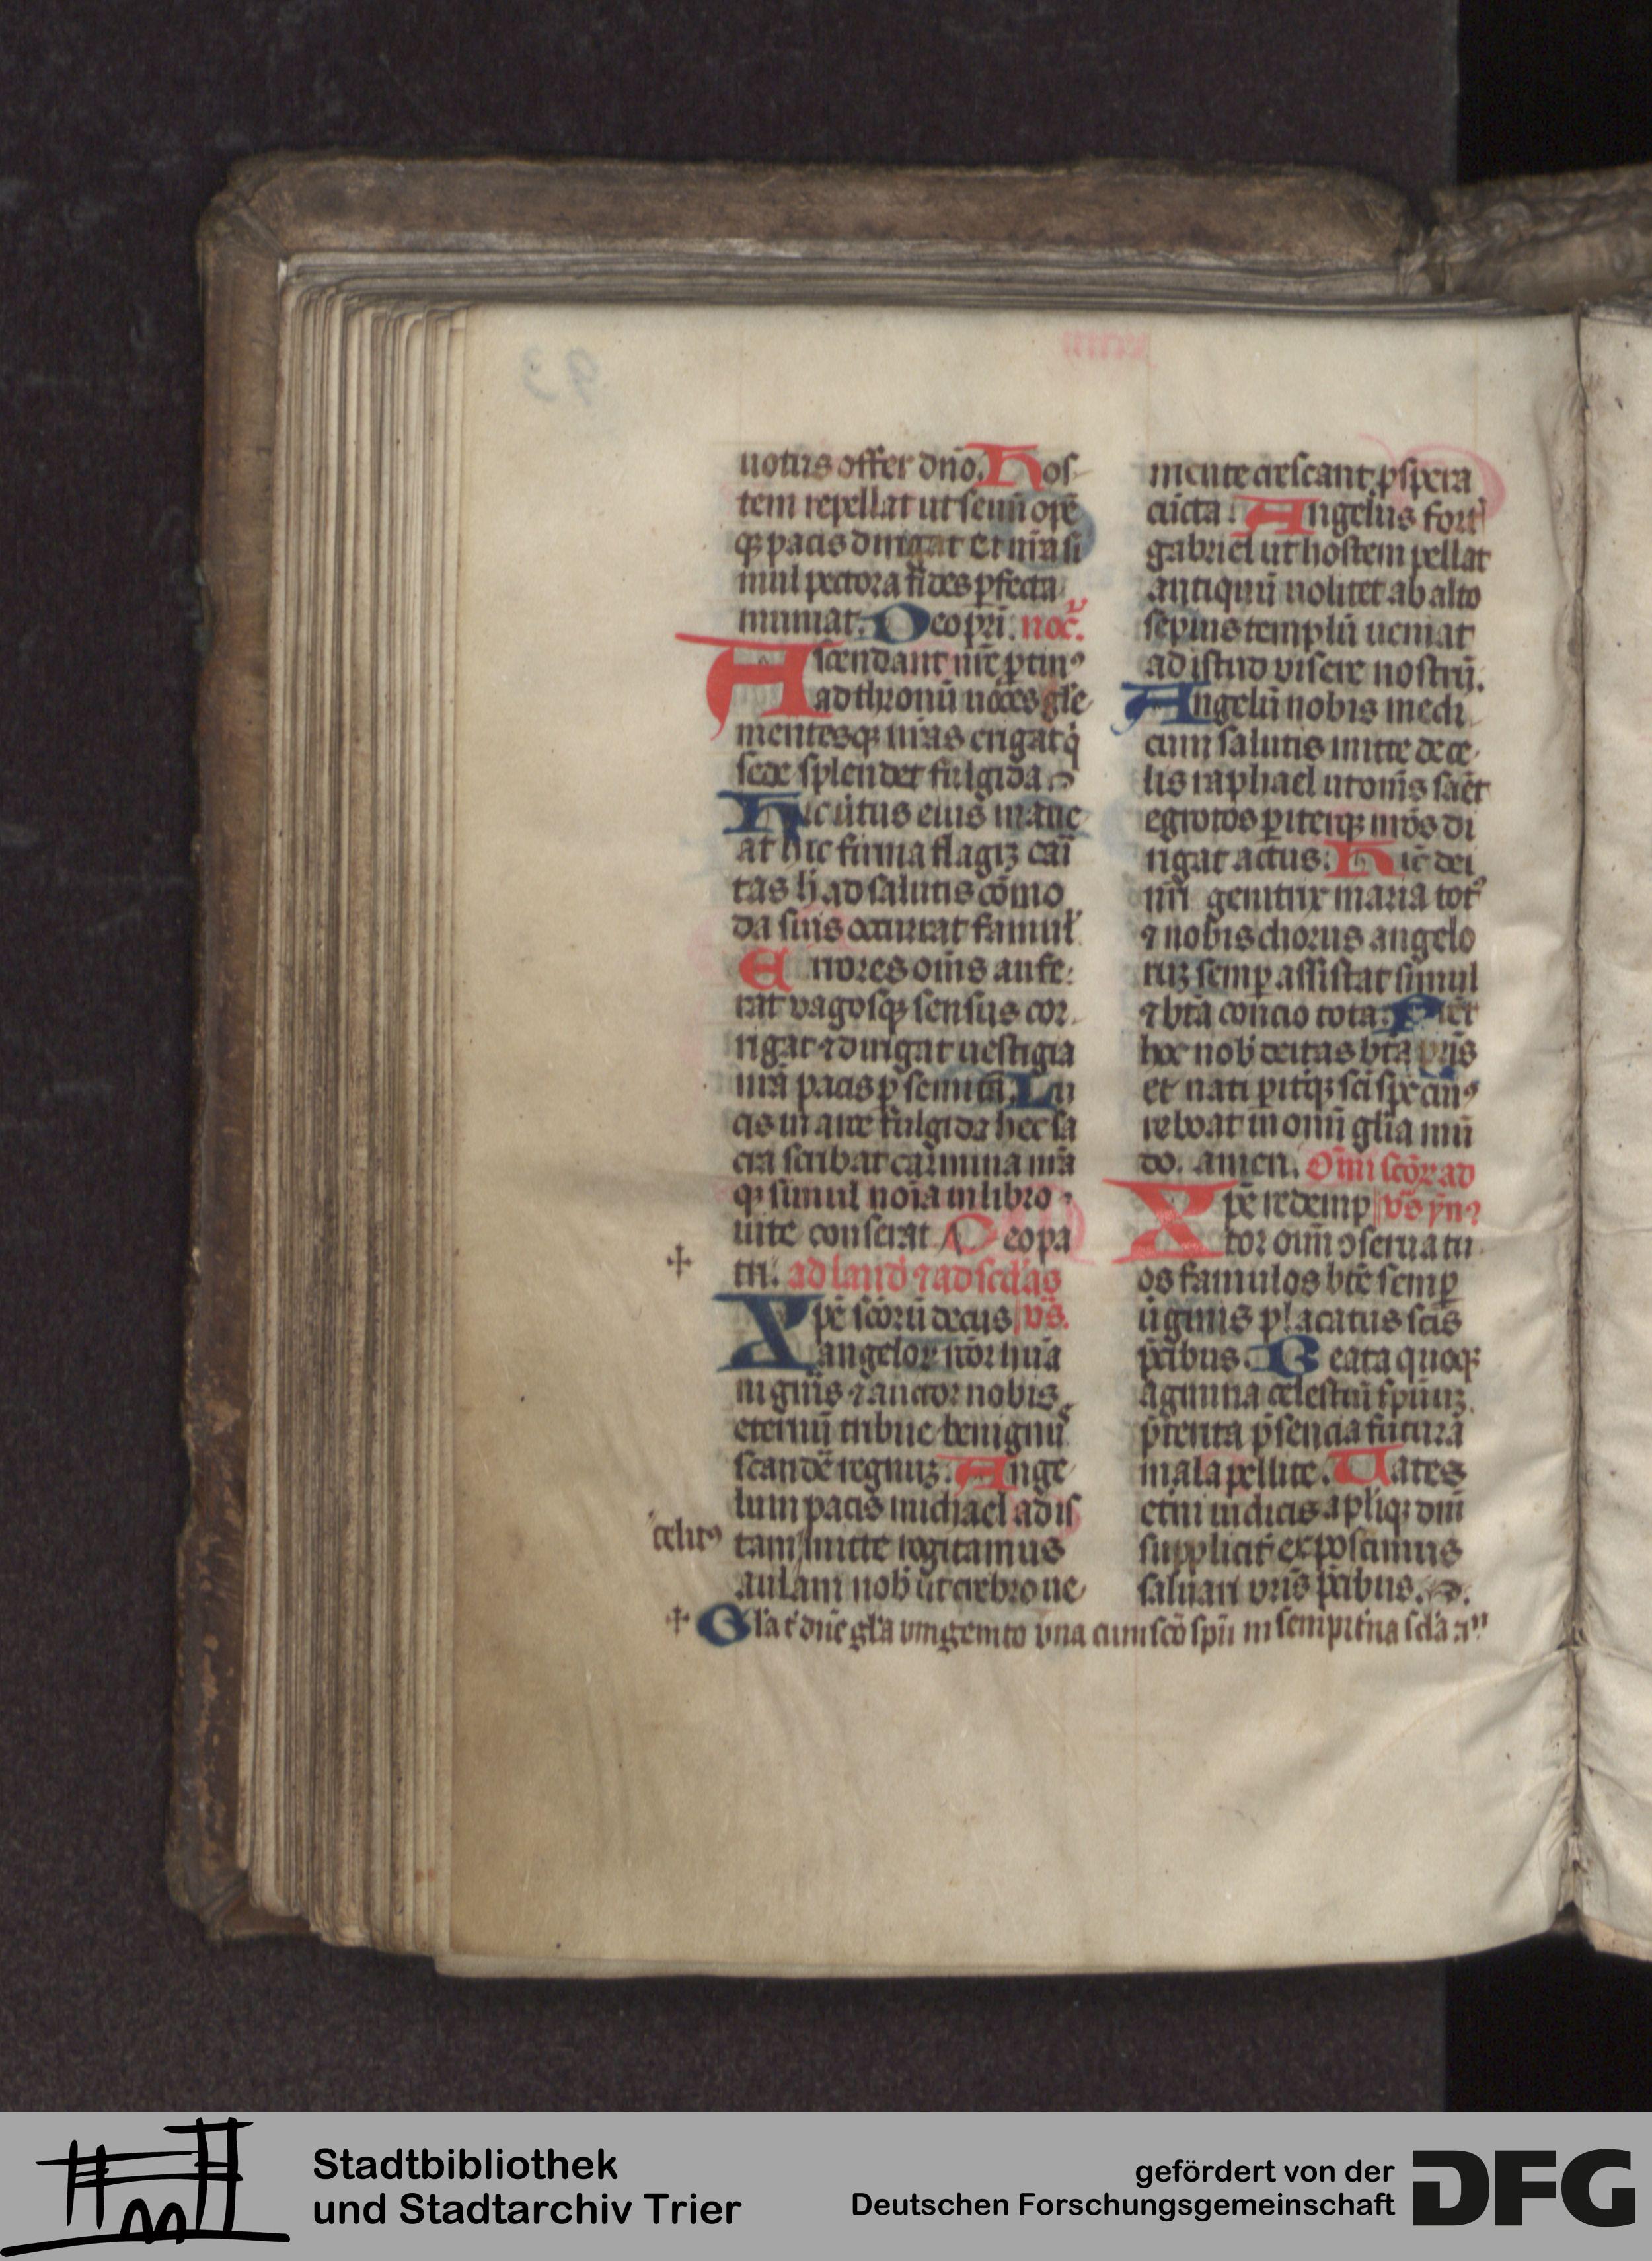 uotus offer dño. Hos
tem repellat ut senũ opẽ
qꝫ pacis dirigat et nr̃a si
mul pectora fides ꝑfecta
muniat. Deo pr̃i. noc̃.
Ascendant nr̃e ꝓtinꝰ
ad thronũ uoces gl̃e
mentesqꝫ nr̃as erigat q̇
sede splendet fulgida.
Hic ũtus eius mane
at hic firma flagꝫ cai
tas h̃ ad salutis cõmo
da suis occurrat famul̃
Errores om̃s aufe
rat vagosqꝫ sensus cor
rigat ⁊ dirigat uestigia
nr̃a pacis ꝑ semitã. Lu
cis in arce fulgida hec sa
cra scribat carmina nr̃a
qꝫ simul noĩa in libro
uite conserat Deo pa
tri. ad laud̃ ⁊ ad sc̃das
Xpe sc̃oꝝ decus vs̃.
angeloꝝ rc̃or hũa
ni gñis ⁊ auctor nobis
eternũ tribue benignꝰ
scandẽ regnuꝫ. Ange
lum pacis michael ad is
celitꝰ tam mitte rogitamus
aulam nob̃ ut crebro ue
mente crescant ꝓspera
cũcta. Angelus fortꝭ
gabriel ut hostem pellat
antiquũ uolitet ab alto
sepius templũ ueniat
ad istud viscere nostrũ.
Angelũ nobis medi
cum salutis mitte de ce
lis raphael ut om̃s sãet
egrotos ꝑiterqꝫ nr̃os di
rigat actus. Hic dei
nr̃i genitrix maria totꝰ
⁊ nobis chorus angelo
ruꝫ semꝑ assistat simul
⁊ btã concio tota. Prẽt
hoc nob̃ deitas btã pr̃is
et nati ꝑitqꝫ sc̃i spc̃ ciuꝰ
reboat in omĩ gl̃ia mũ
do. amen. Om̃i sc̃oꝝ ad
Xpe redemp vs̃ ym̃ꝰ
tor oim̃ ↄserua tu
os famulos btẽ semꝑ
ũginis placatus sc̃is
p̃cibus. Beata quoqꝫ
agmina celestiũ spũuꝫ
p̃terita p̃sencia futura
mala pellite. Uates
et̃ni iudicis apl̃iqꝫ dñi
supplicit̃ exposcimus
saluari vr̃is p̃cibus.
Gl̃a t̃ dñe gl̃a vnigenito vna cum sc̃o spũ in sempit̃na sc̃la
Stadtbibliothek
und Stadtarchiv Trier
gefördert von der
Deutschen Forschungsgemeinschaft
DFG